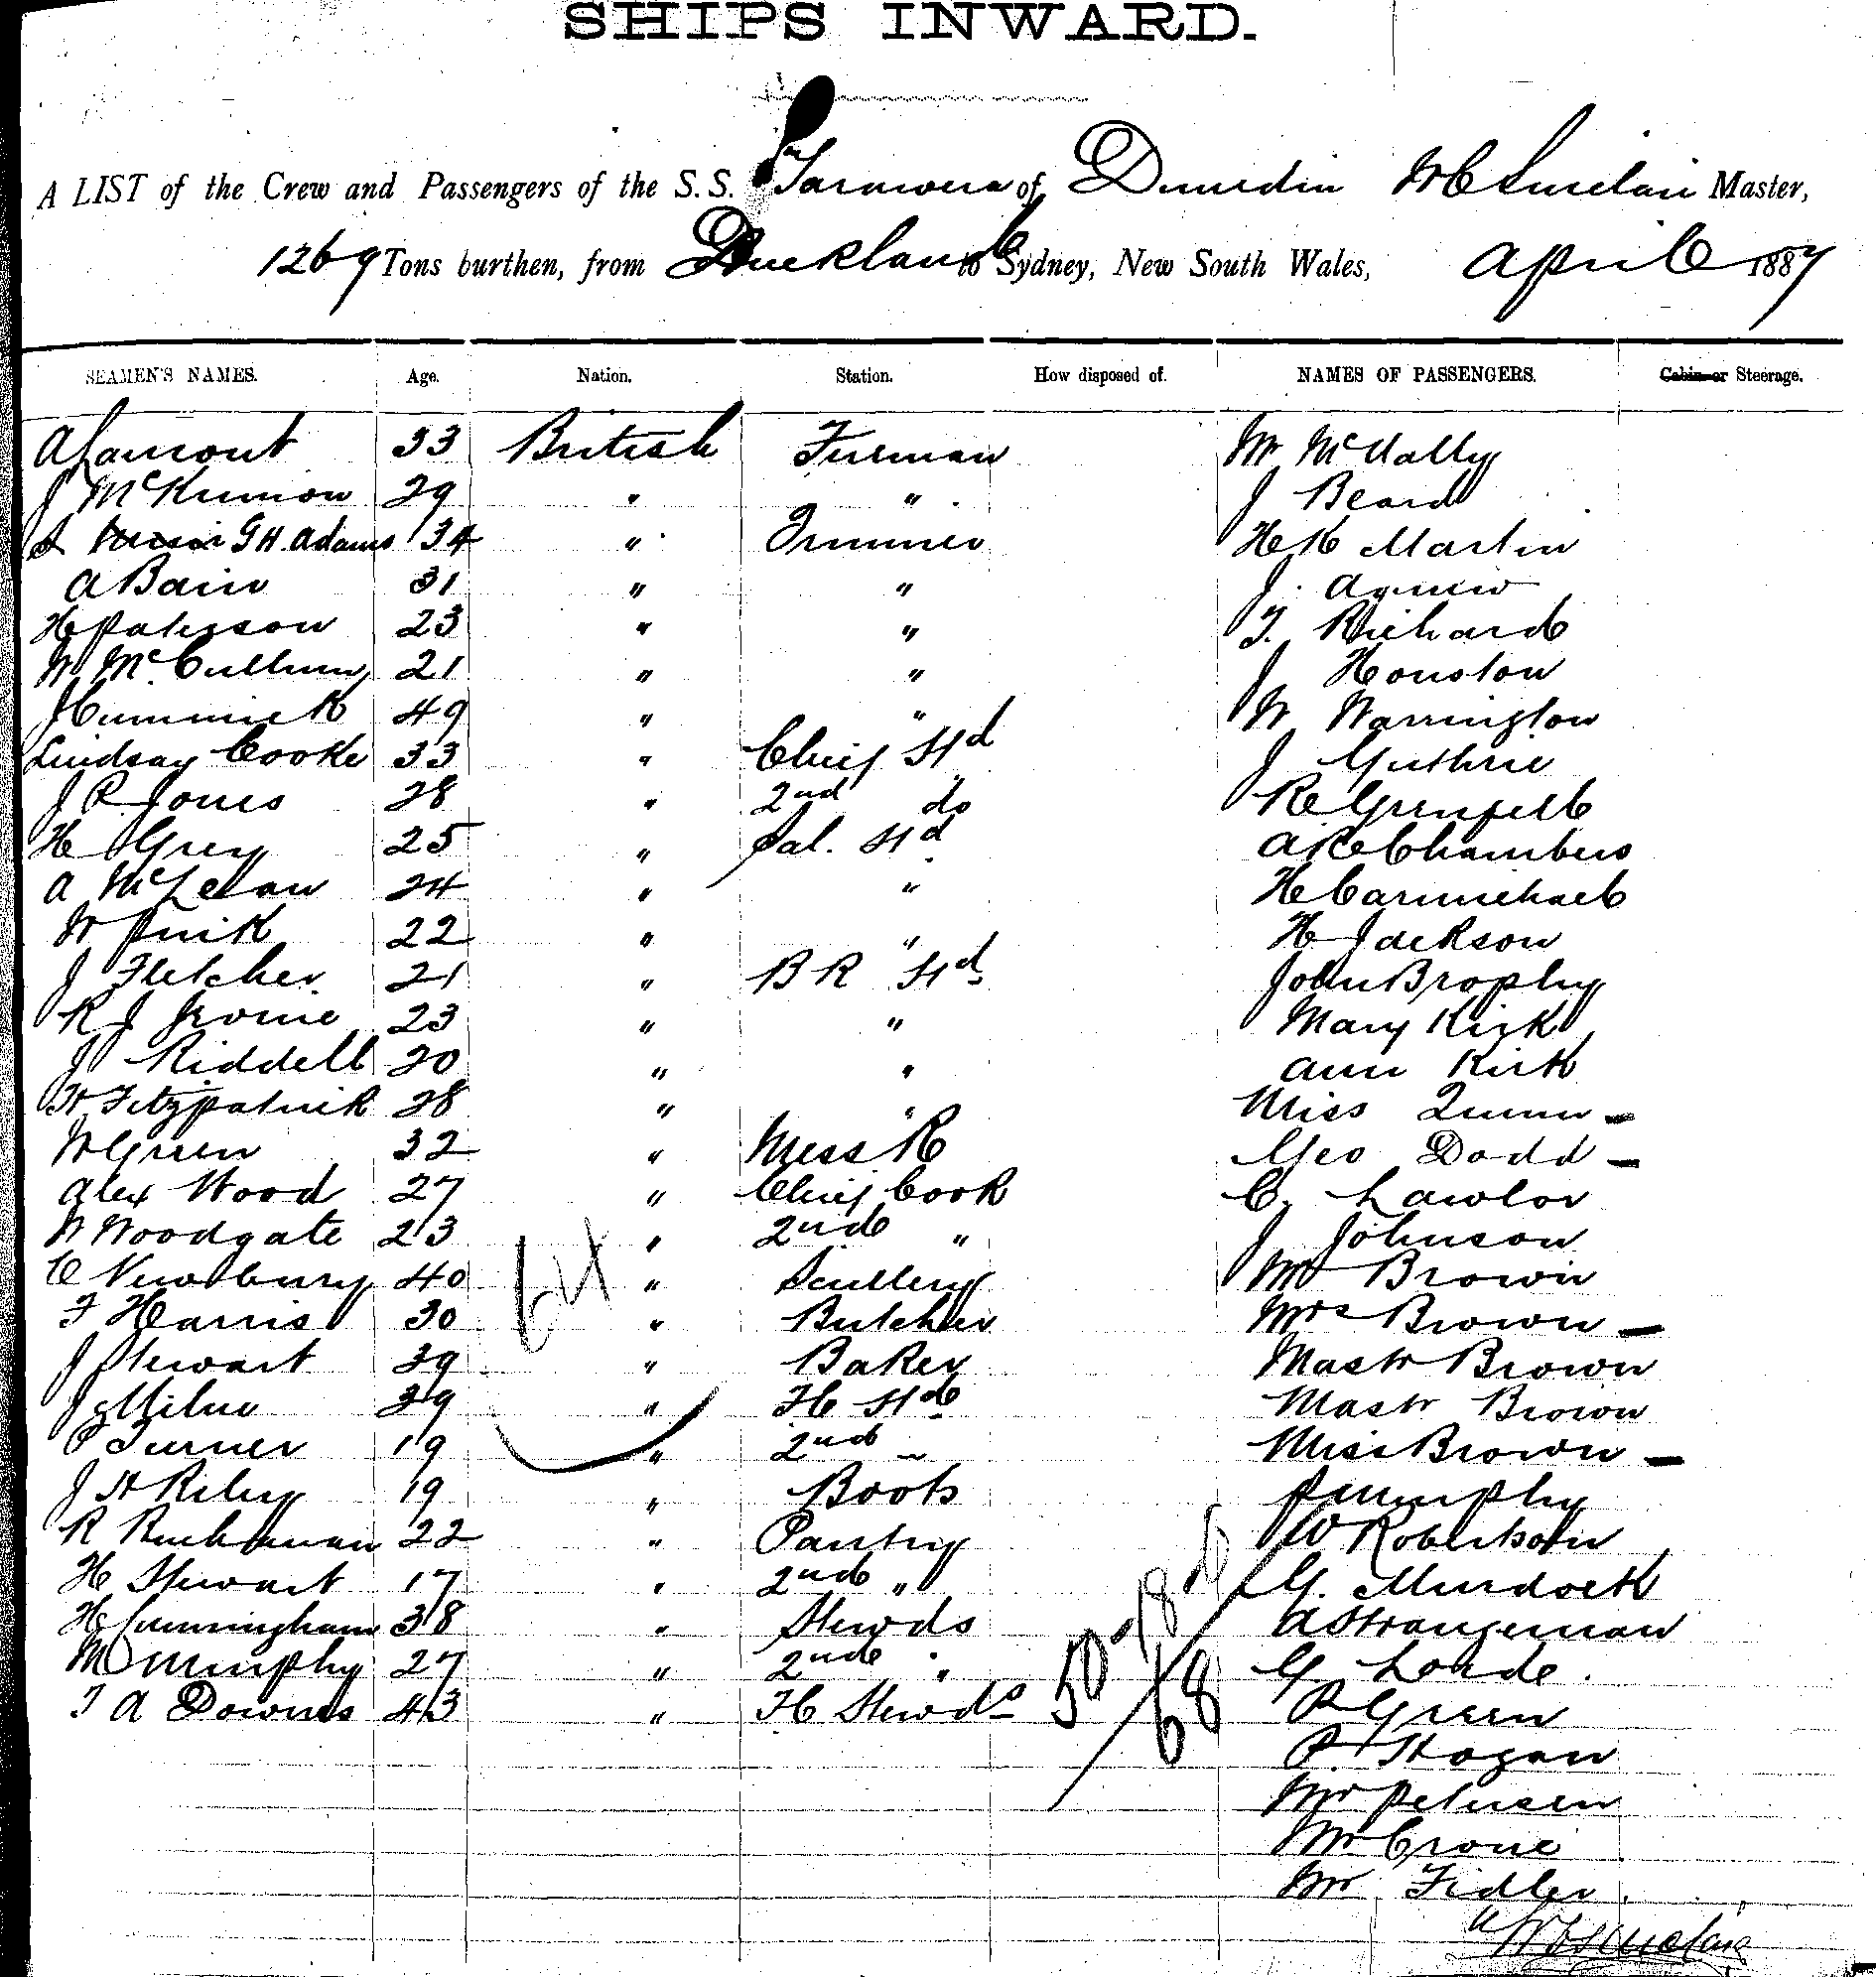 SHIPS INWARD.
A LIST of the Crew and Passengers of the S.S. Tarawera of Dunedin W C Sinclair Master,
1269 Tons burthen, from Auckland to Sydney, New South Wales, April 1887
SEAMEN'S NAMES. Age. Nation. Station. How disposed of. NAMES OF PASSENGERS. Cabin or Steerage.
A Lamont 33 British Fireman Mr McNally
J McKinnon 29 " " J Beard
G H. Adams 34 " Trimmer H K Martin
A Bain 31 " " J. Agnew
H Paterson 23 " " T. Richard
W McCullum 21 " " J Houston
J Cummick 49 " " W Warrington
Lindsay Cooke 33 " Chief Std J Guthrie
J R Jones 28 " 2nd do R Grenfell
H Grey 25 " Sal. Std A R Chambers
A McLean 24 " " H Carmichael
W Pink 22 " " H Jackson
J Fletcher 21 " B R Std John Brophy
R J Irvine 23 " " Mary Kirk
J Riddell 20 " " Ann Kirk
W Fitzpatrick 28 " " Miss Quinn -
W Green 32 " Mess R Geo Dodd -
Alex Wood 27 " Chief Cook C. Lawlor
W Woodgate 23 " 2nd " J Johnson
C Newbury 40 " Scullery Mr Brown
F Harris 30 " Butcher Mrs Brown -
J Stewart 39 " Baker Mastr Brown
J Milne 39 " F C Std Mastr Brown
P Turner 19 " 2nd " Miss Brown -
J W Riley 19 " Boots P Murphy
R Buchanan 22 " Pantry W Robertson
H Stewart 17 " 2nd " G. Murdock
H Cunningham 38 " Stewds A Strangeman
M Murphy 27 " 2nd " G Loade.
T A Downes 43 " F C Stewds R Green
P. Hogan
Mr Petersen
Mr Crone
Mr Fidler.
64
50
18
68
W C Sinclair